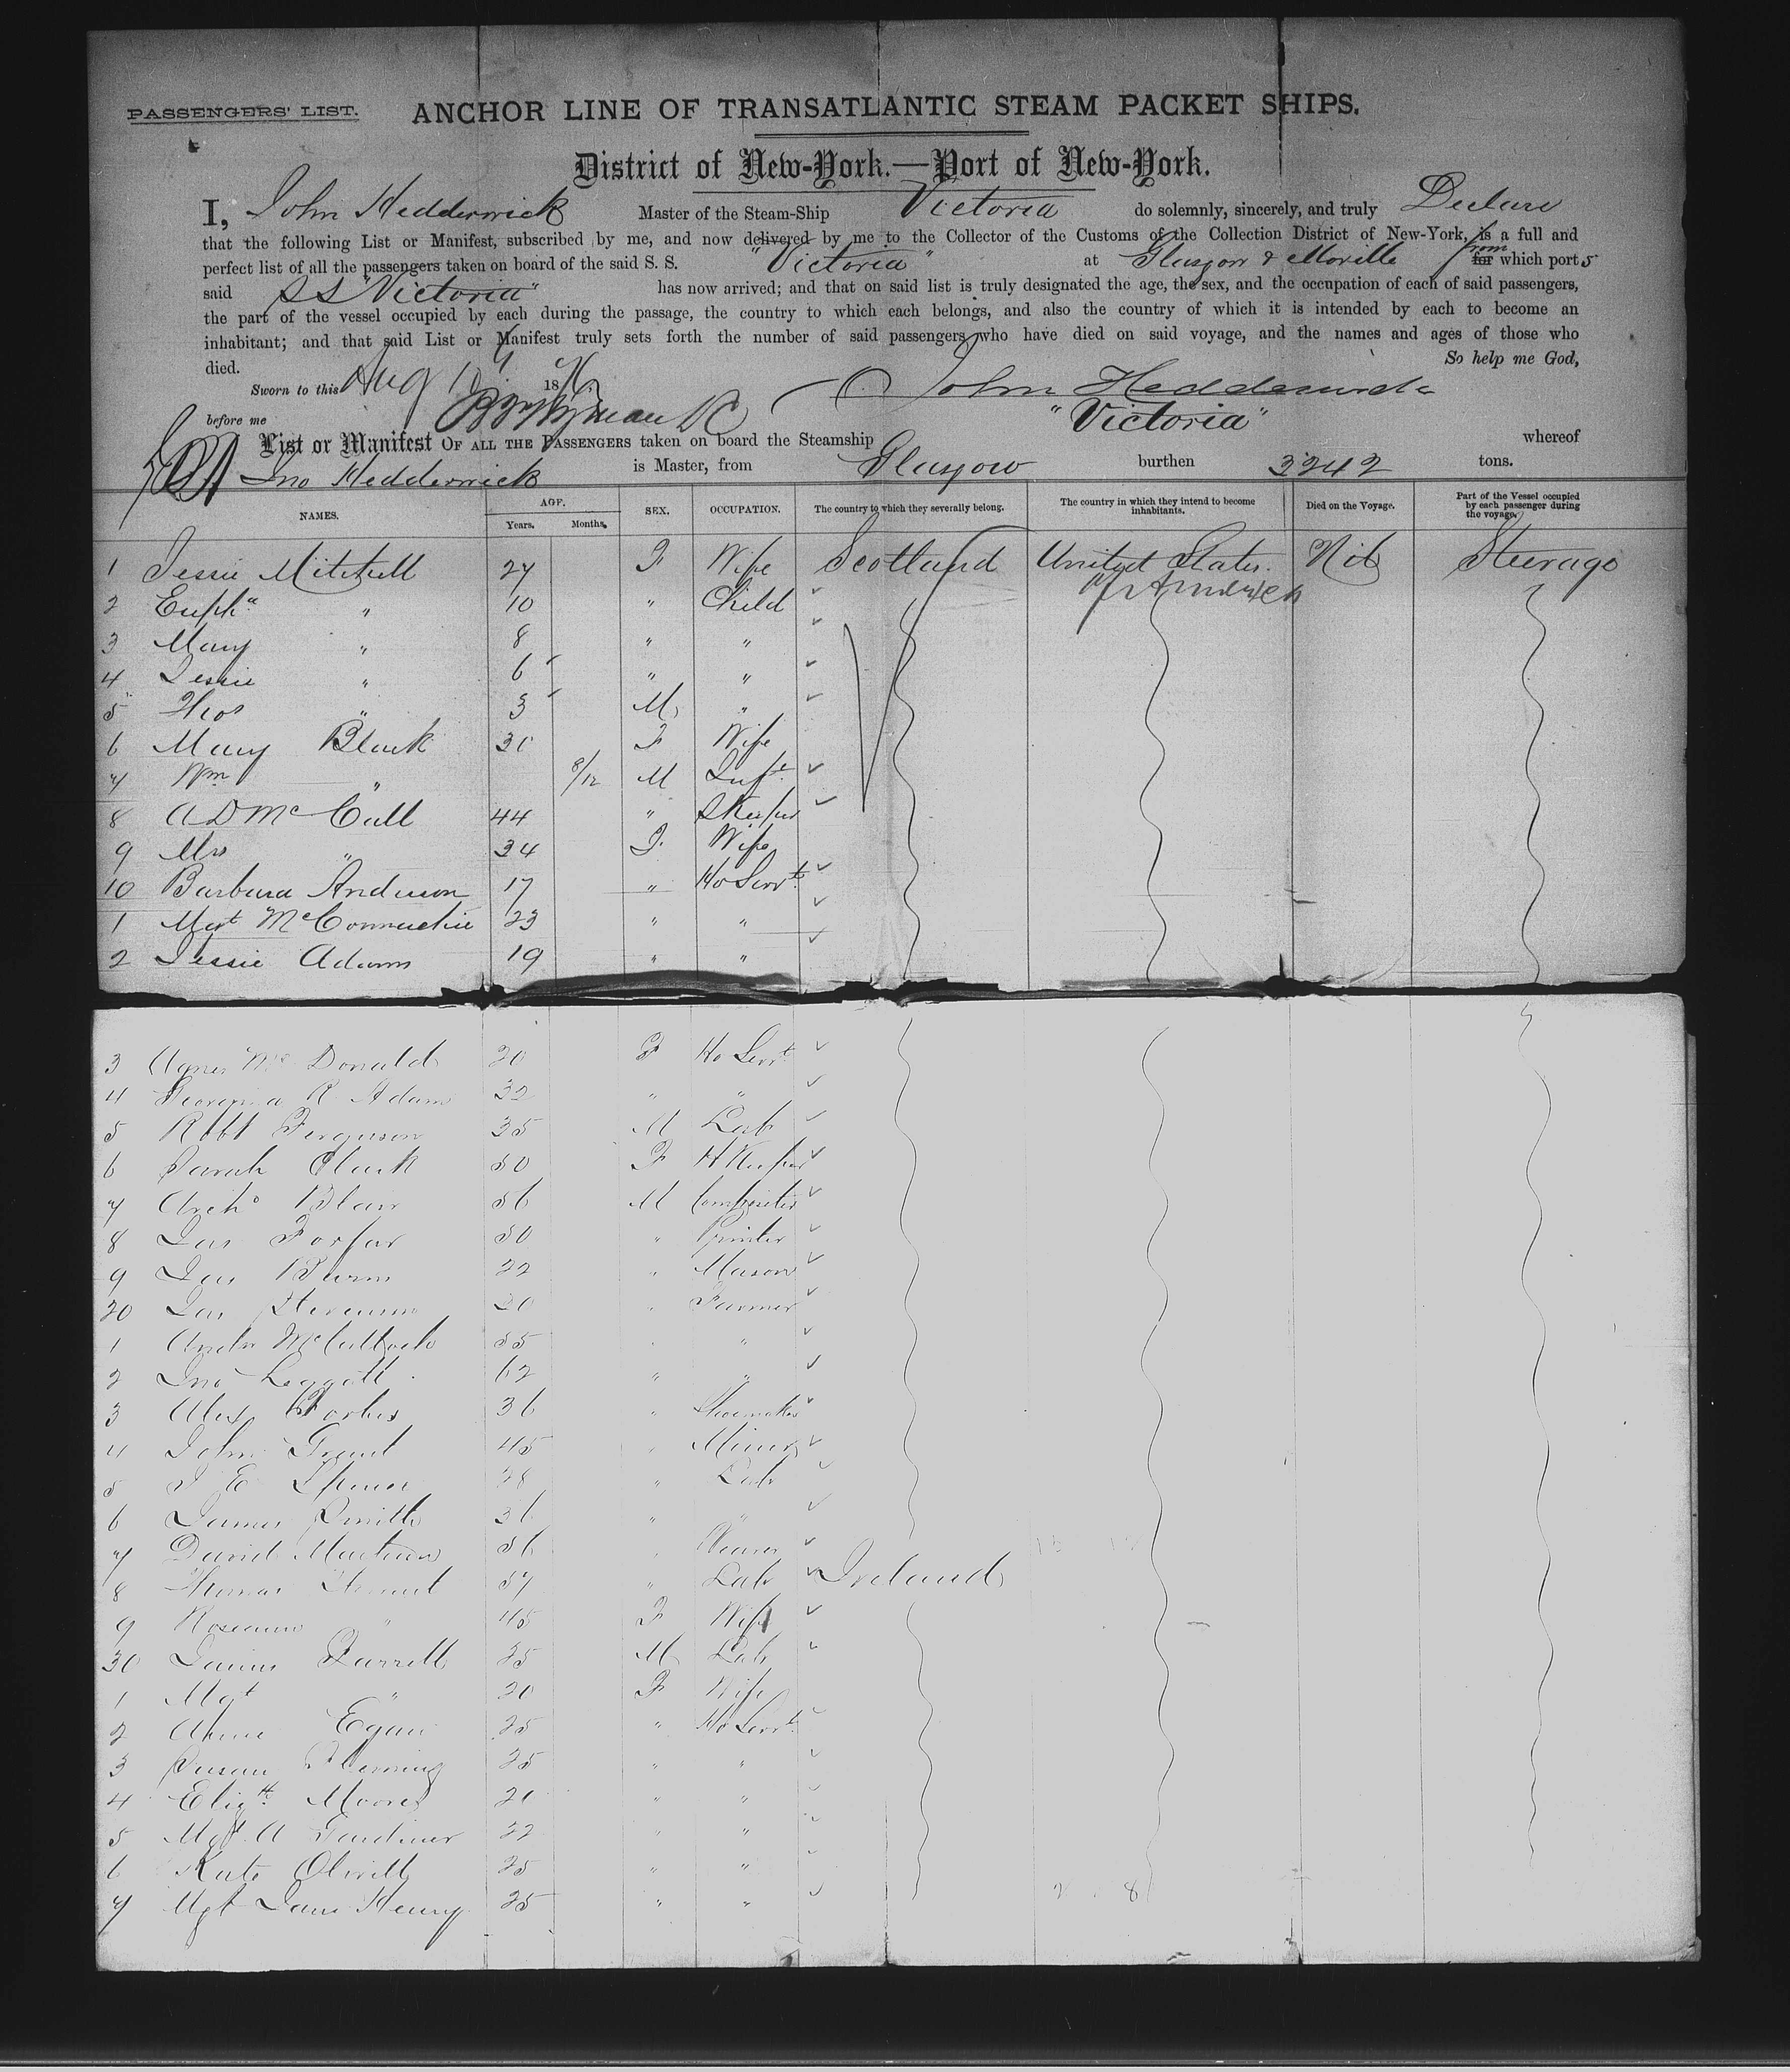 PASSENGERS' LIST. ANCHOR LINE OF TRANSATLANTIC STEAM PACKET SHIPS.
District of New-York.—Port of New-York.
I, John Hedderwick Master of the Steam-Ship Victoria do solemnly, sincerely, and truly Declare
that the following List or Manifest, subscribed by me, and now delivered by me to the Collector of the Customs of the Collection District of New-York, is a full and
perfect list of all the passengers taken on board of the said S. S. "Victoria" at Glasgow & Moville from for which port s
said SS "Victoria" has now arrived; and that on said list is truly designated the age, the sex, and the occupation of each of said passengers,
the part of the vessel occupied by each during the passage, the country to which each belongs, and also the country of which it is intended by each to become an
inhabitant; and that said List or Manifest truly sets forth the number of said passengers who have died on said voyage, and the names and ages of those who
died. So help me God,
Sworn to this Aug 18 John Hedderwick
before me "Victoria"
List or Manifest OF ALL THE PASSENGERS taken on board the Steamship whereof
Jno Hedderwick is Master, from Glasgow burthen 3242 tons.
NAMES. AGE. Years. Months. SEX. OCCUPATION. The country to which they severally belong. The country in which they intend to become inhabitants. Died on the Voyage. Part of the Vessel occupied by each passenger during the voyage.
1 Jessie Mitchell 27 F Wife Scotland United States. Nil Steerage
2 Eupha " 10 " Child
3 Mary " 8 " "
4 Jessie " 6 " "
5 Thos " 3 M "
6 Mary Black 30 F Wife
7 Wm " 8/12 M Inft
8 A D McCall 44 " SKeeper
9 Mrs " 34 F Wife
10 Barbara Anderson 17 " Ho Servt
1 Mgt McConnachie 23 " "
2 Jessie Adams 19 " "
3 Agnes McDonald 20 F Ho Servt
4 Georgina R Adam 32 " "
5 Robt Ferguson 35 M Lab
6 Sarah Clark 50 F HKeeper
7 Archd Blair 56 M Compositor
8 Jas Forfar 50 " Printer
9 Jas Burns 22 " Mason
20 Jas Stevenson 20 " Farmer
1 Andw McCulloch 55 " "
2 Jno Leggatt 62 " "
3 Alex Forbes 36 " Shoemaker
4 John Grant 45 " Miner
5 J E Spence 28 " Lab
6 James Smith 36 " "
7 David 56 " Weaver
8 Thomas 57 " Lab Ireland
9 Roseann " 45 F Wife
30 James Farrell 25 M Lab
1 Mgt " 20 F Wife
2 Annie Egan 25 " Ho Servt
3 Susan Fleming 25 " "
4 Elizth Moore 20 " "
5 Mgt A Gardiner 22 " "
6 Kate 25 " "
7 Mgt Jane Henry 25 " "